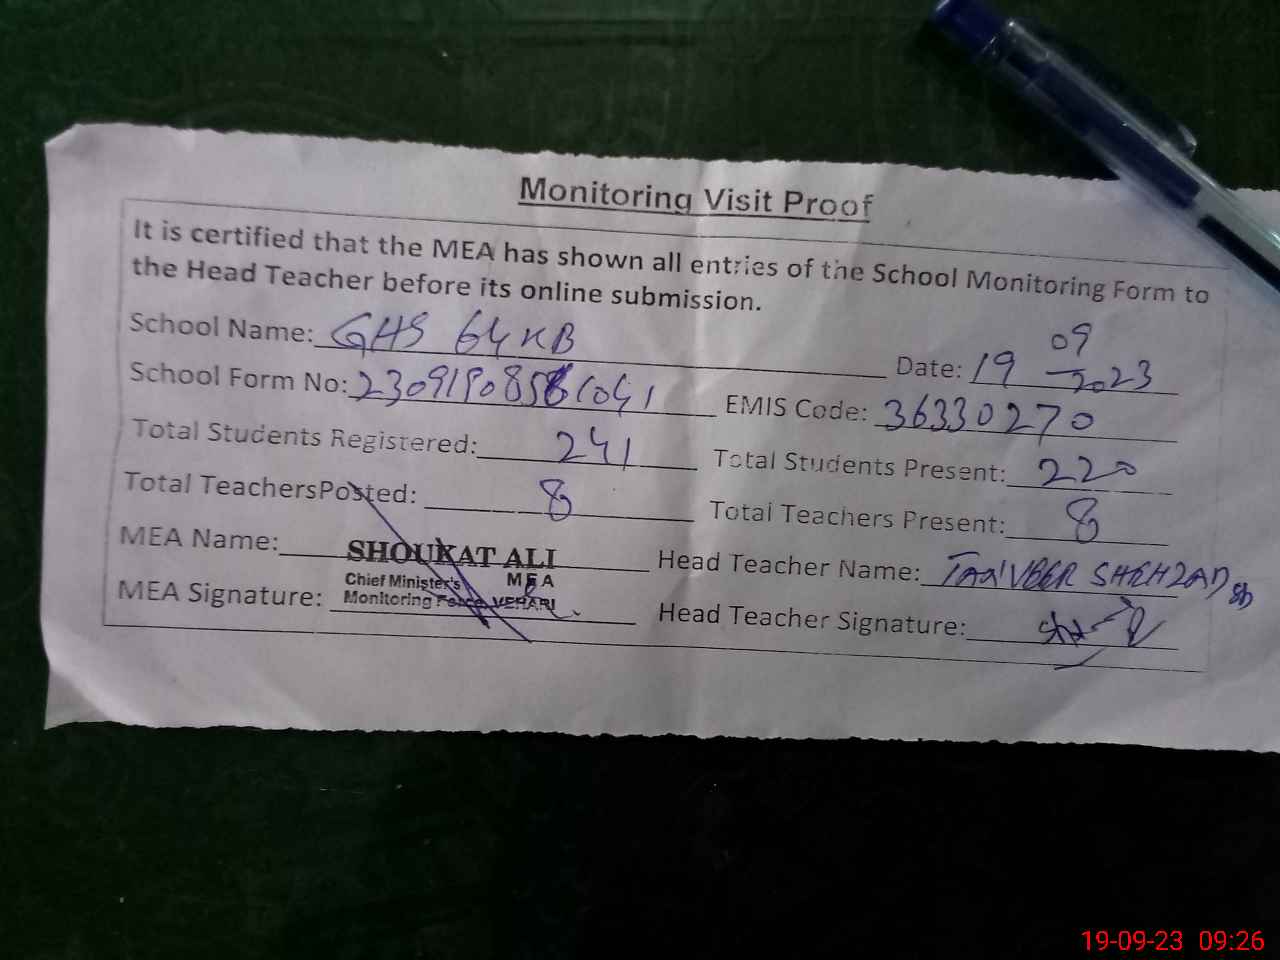 Monitoring Visit Proof
It is certified that the MEA has shown all entries of the School Monitoring Form to
the Head Teacher before its online submission.
School Name: GHS 64 KB Date: 19 09 2023
School Form No: EMIS Code: 36330270
Total Students Registered: 241 Total Students Present: 220
Total TeachersPosted: 8 Total Teachers Present: 8
MEA Name: SHOUKAT ALI Head Teacher Name: SHEHZAD
Chief Minister's MEA
MEA Signature: Monitoring Force VEHARI Head Teacher Signature:
19-09-23 09:26